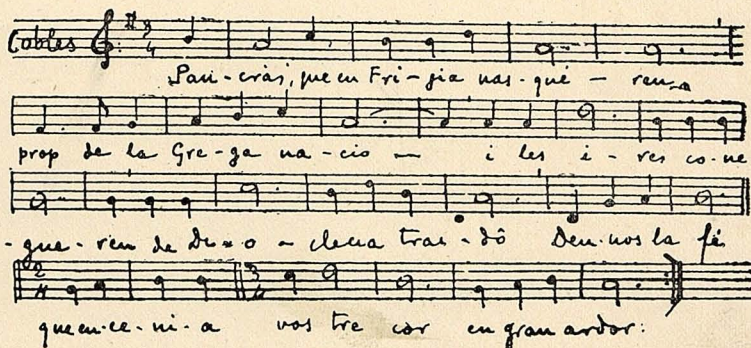 Cobles 3 4
Pan-cràs, que en Fri-gia nas-qué - ren
prop de la Gre-ga na-ció - i les i-res co-ne
-gue-ren de Di-o-clecia traï-dó Deu-nos la fé
2 4 3 4
que en-ce-ni-a vos tre cor en gran ardor: